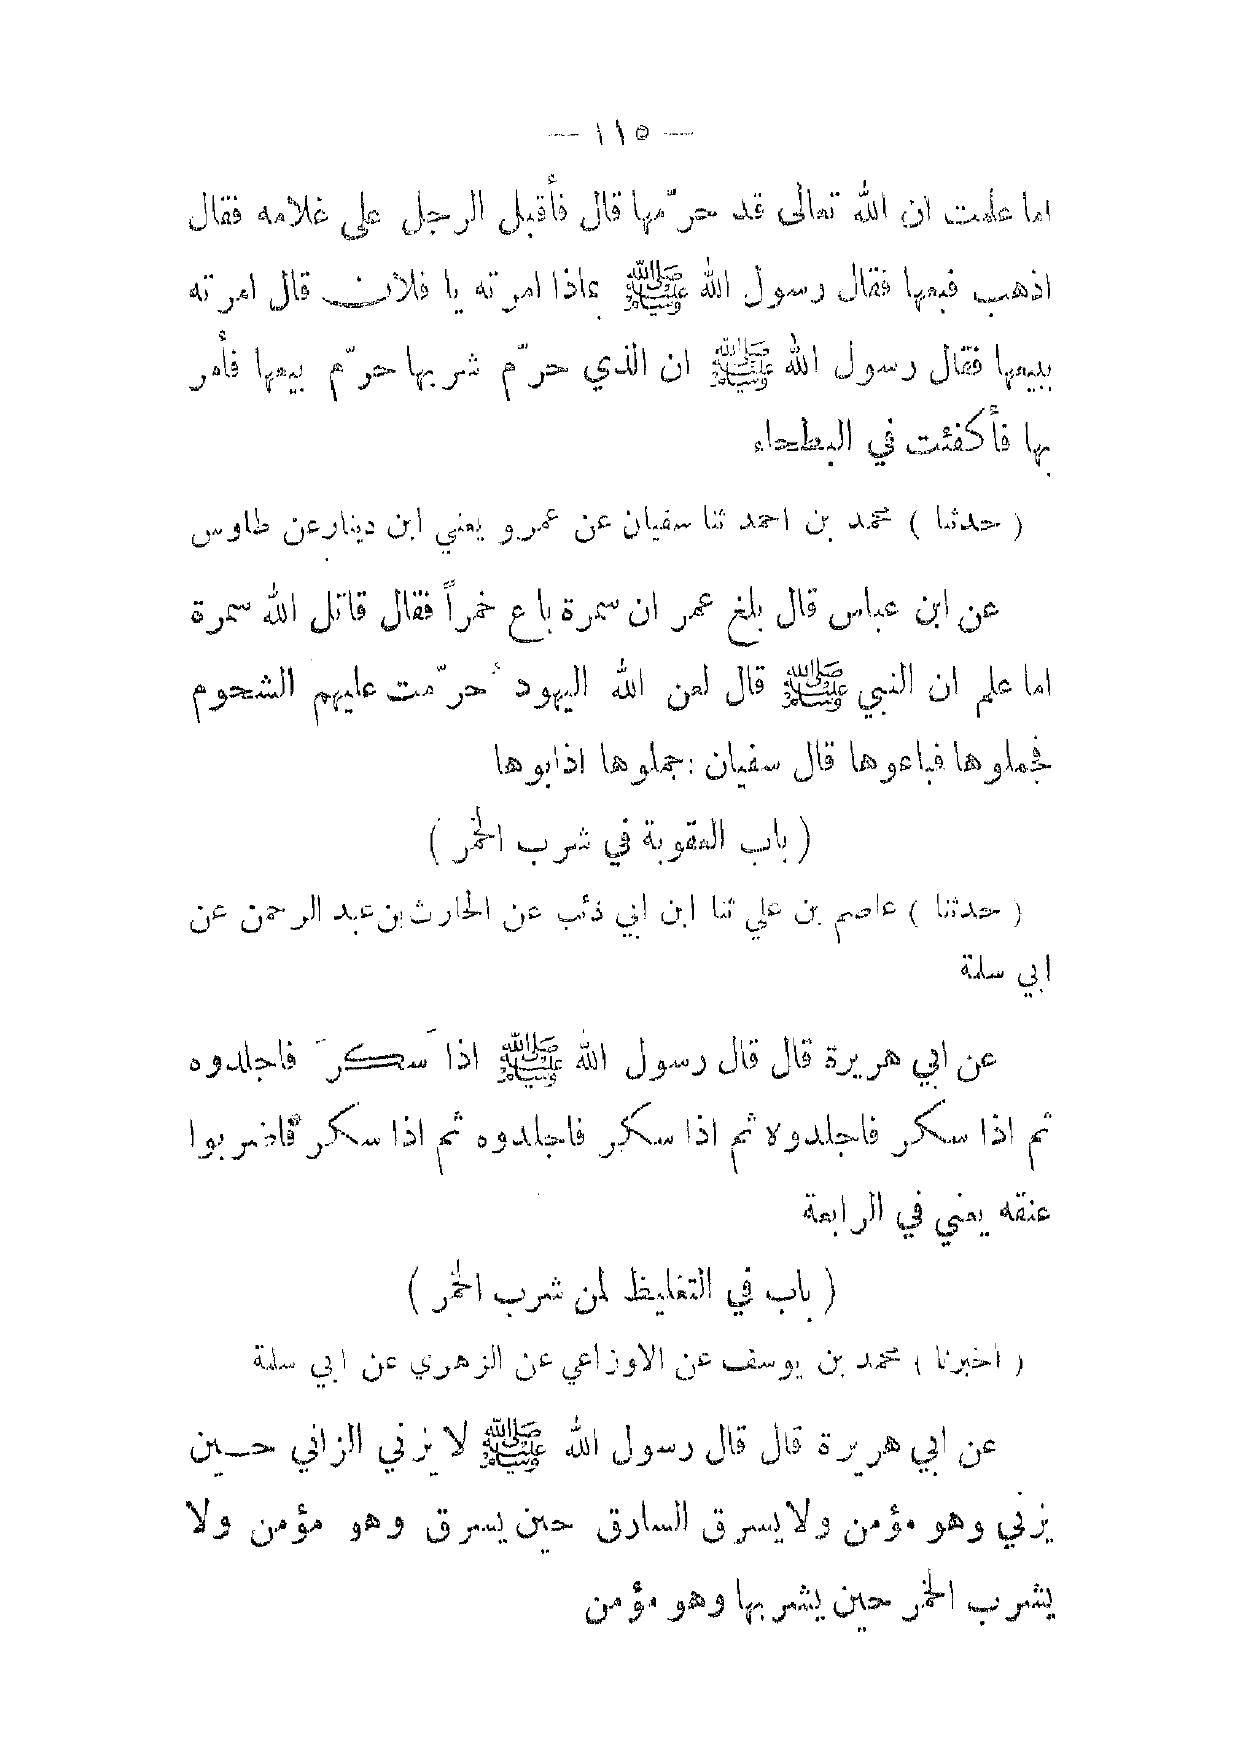 — ١١٥ —
اما علمت ان الله تعالى قد حرّمها قال فأقبل الرجل على غلامه فقال
اذهب فبعها فقال رسول الله ﷺ بماذا امرته يا فلان قال امرته
ببيعها فقال رسول الله ﷺ ان الذي حرّم شربها حرّم بيعها فأمر
بها فأكفئت في البطحاء
( حدثنا ) محمد بن احمد ثنا سفيان عن عمرو يعني ابن دينار عن طاوس
عن ابن عباس قال بلغ عمر ان سمرة باع خمراً فقال قاتل الله سمرة
اما علم ان النبي ﷺ قال لعن الله اليهود حُرّمت عليهم الشحوم
فجملوها فباعوها قال سفيان : جملوها اذابوها
( باب العقوبة في شرب الخمر )
( حدثنا ) عاصم بن علي ثنا ابن ابي ذئب عن الحارث بن عبد الرحمن عن
ابي سلمة
عن ابي هريرة قال قال رسول الله ﷺ اذا سَكرَ فاجلدوه
ثم اذا سكر فاجلدوه ثم اذا سكر فاجلدوه ثم اذا سكر فاضربوا
عنقه يعني في الرابعة
( باب في التغليظ لمن شرب الخمر )
( اخبرنا ) محمد بن يوسف عن الاوزاعي عن الزهري عن ابي سلمة
عن ابي هريرة قال قال رسول الله ﷺ لا يزني الزاني حين
يزني وهو مؤمن ولا يسرق السارق حين يسرق وهو مؤمن ولا
يشرب الخمر حين يشربها وهو مؤمن